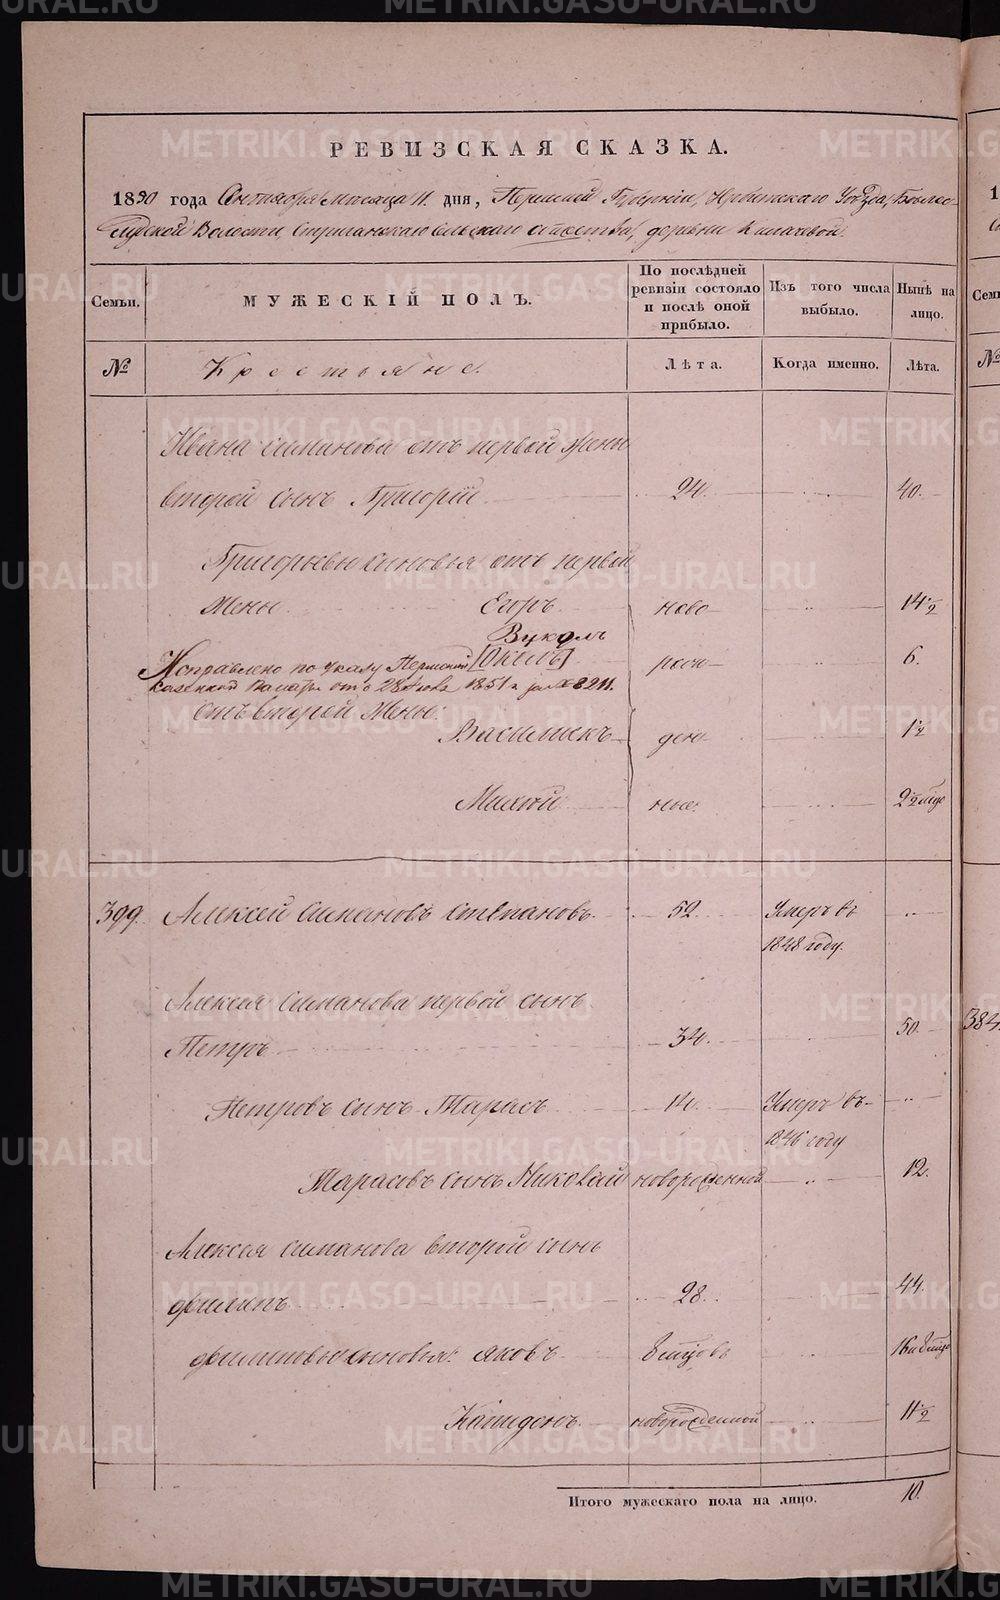 РЕВИЗСКАЯ СКАЗКА.
1850 года Октября месяца 11 дня, Пермской Губернии, Ирбитскаго Уѣзда,
Волости, Стриганскаго сельскаго общества, деревни
Семьи. МУЖЕСКІЙ ПОЛЪ. По послѣдней ревизіи состояло и послѣ оной прибыло. Изъ того числа выбыло. Нынѣ на лицо.
№ Крестьяне. Лѣта. Когда именно. Лѣта.
Ивана Симанова отъ первой жены
второй сынъ Григорій 24. 40.
Григорьевы сыновья отъ первой
жены Егоръ ново 14½
Вуколъ
Исправлено по указу Пермской рож 6.
Казенной Палаты отъ 28 1851 г за № 8211.
отъ второй жены:
Василискъ ден 1½
Михей ные
399. Алексей Симановъ Степановъ 52. Умеръ въ
1848 году.
Алексея Симанова первой сынъ
Петръ 34. 50.
384.
Петровъ сынъ Тарасъ 14. Умеръ въ
1846 году
Тарасовъ сынъ Николай новорожденной 12.
Алексея Симанова второй сынъ
Филипъ 28. 44.
Филиповы сыновья: Яковъ 8 мцовъ
новорожденной 11½
Итого мужескаго пола на лицо. 10.
METRIKI.GASO-URAL.RU